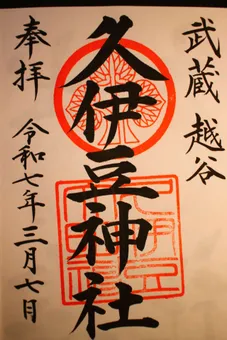 武蔵 越谷
久伊豆神社
奉拝
令和七年三月七日